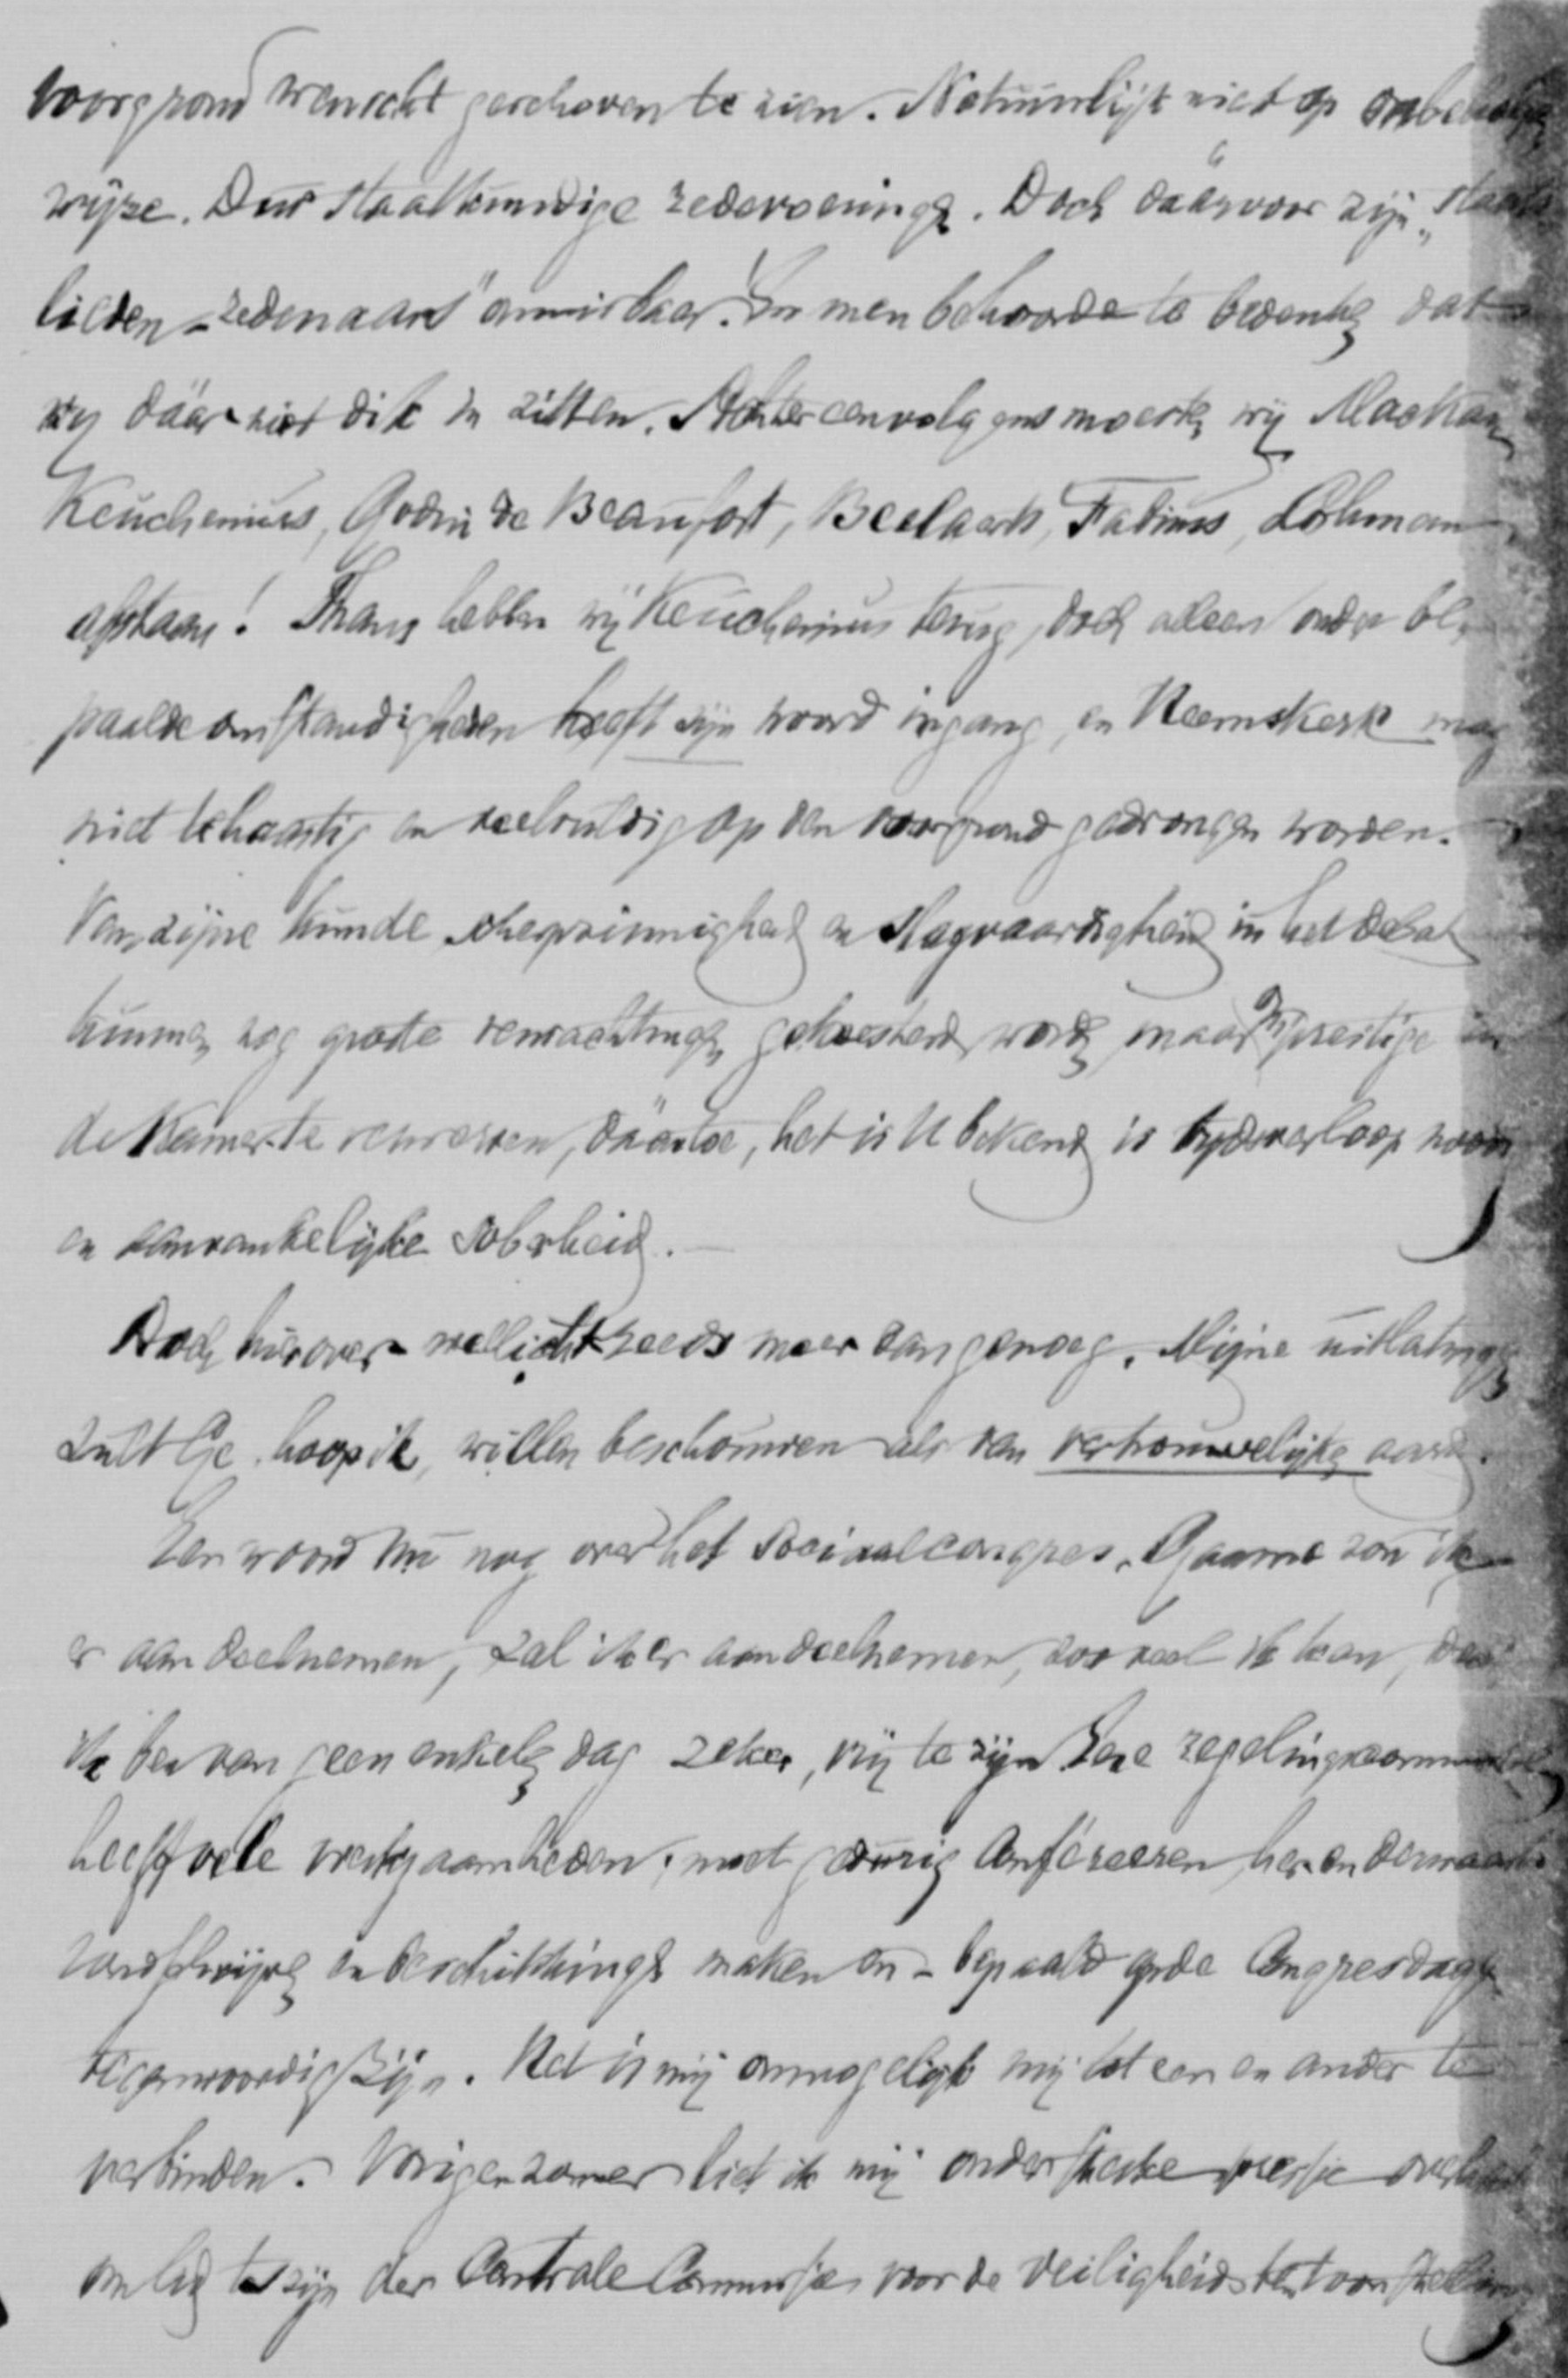 voorgrond wenscht geschoven te zien. Natuurlijk niet op onbeholpen
wijze. Door staatkundige redevoeringen. Doch dáárvoor zijn "staats-
lieden-redenaars" onmisbaar. En men behoorde te bedenken dat
wy dáár niet dik in zitten. Achtereenvolgens moesten wij Mackay,
Keuchenius, Godin de Beaufort, Beelaerts, Fabius, Lohman
afstaan! Thans hebben wij Keuchenius terug, doch alleen onder be-
paalde omstandigheden heeft zijn woord ingang, en Heemskerk mag
niet te haastig en veelvuldig op den voorgrond gedrongen worden.
Van zijne kunde, scherpzinnigheid en slagvaardigheid in het debat
kunnen nog groote verwachtingen gekoesterd worden, maar om prestige in
de Kamer te verwerven, dáártoe, het is U bekend, is tijdsverloop noodig
en aanvankelijke soberheid. —
Doch hierover wellicht reeds meer dan genoeg. Mijne uitlatingen
zult Ge, hoop ik, willen beschouwen als van vertrouwelijken aard.
Een woord nu nog over het Sociaal congres. Gaarne zou ik
er aan deelnemen, zal ik er aan deelnemen, zooveel ik kan, doch
ik ben van geen enkelen dag zeker, vrij te zijn. Eene regelingscommissie
heeft vele werkzaamheden; moet gedurig confereeren, her- en derwaarts
rondschrijven en beschikkingen maken en - bepaald op de Congresdagen
tegenwoordig zijn. Het is mij onmogelijk mij tot een en ander te
verbinden. Vorigen zomer liet ik mij onder sterke pressie overhalen
om lid te zijn der Centrale Commissie voor de Veiligheidstentoonstelling